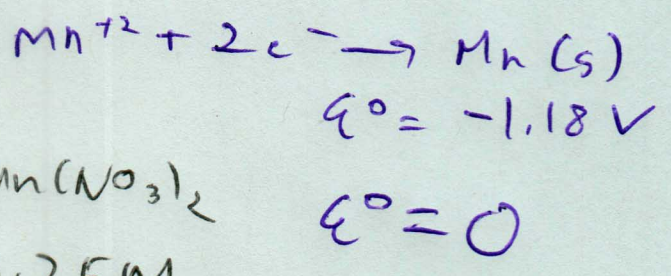 Mn⁺² + 2e⁻ → Mn (s)
ε° = -1.18 V
(NO₃)₂
ε° = 0